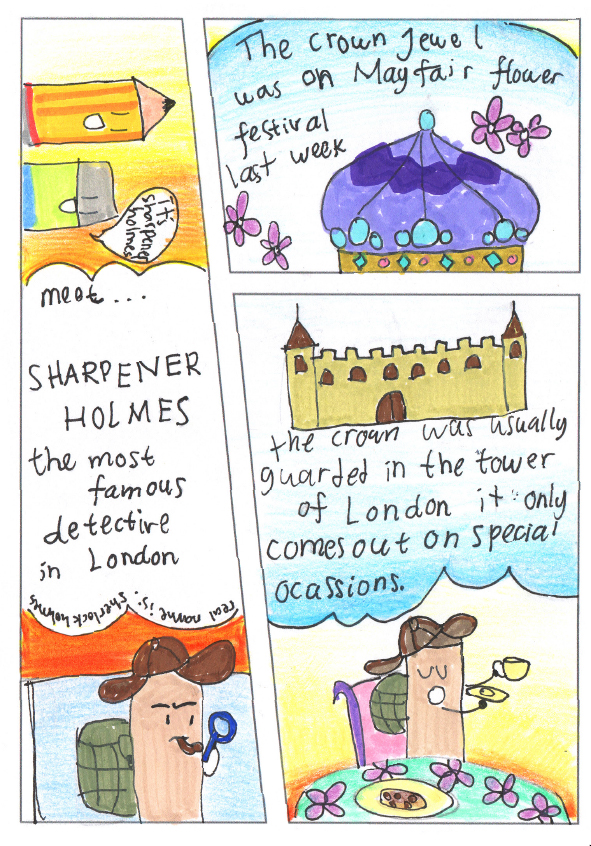 It's
sharpener
holmes!
meet...
SHARPENER
HOLMES
the most
famous
detective
in London
real name is: sherlock holmes
The crown Jewel
was on Mayfair flower
festival
last week
the crown was usually
guarded in the tower
of London it only
comes out on special
ocassions.